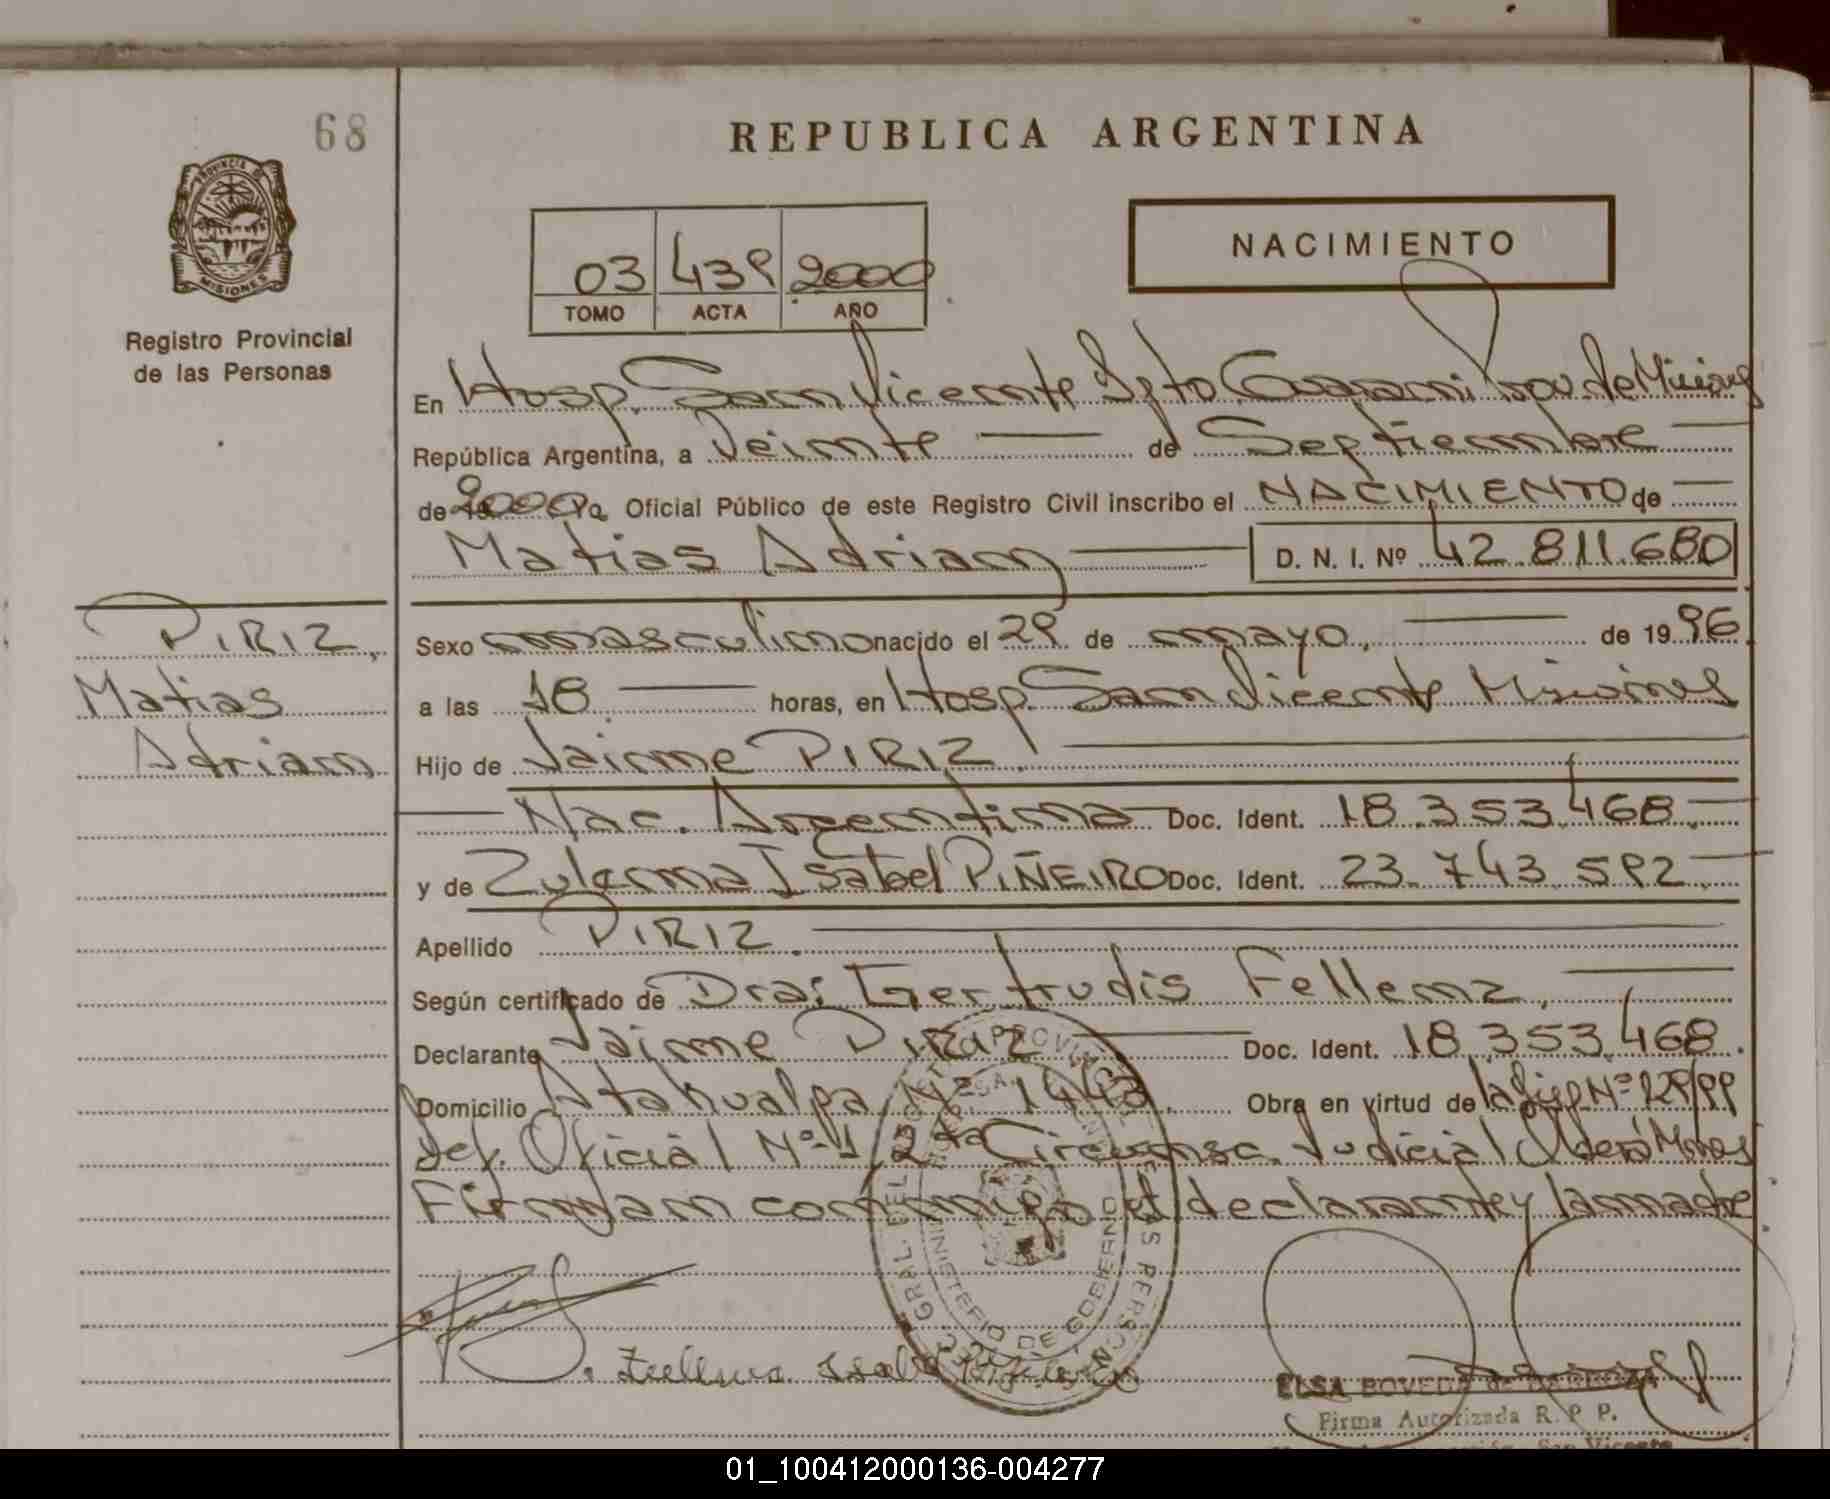 68
REPUBLICA ARGENTINA
PROVINCIA DE
MISIONES
Registro Provincial
de las Personas
NACIMIENTO
03 439 2000
TOMO ACTA AÑO
En Hosp. San Vicente Dpto. Guarani Prov. de Misiones
República Argentina, a Veinte de Septiembre
de 2000 Yo Oficial Público de este Registro Civil inscribo el NACIMIENTO de
Matias Adrian D. N. I. Nº 42.811.680
PIRIZ,
Matias
Adrian
Sexo masculino nacido el 29 de mayo, de 1996.
a las 18 horas, en Hosp. San Vicente Misiones
Hijo de Jaime PIRIZ.
Nac. Argentina Doc. Ident. 18.353.468.
y de Zulema Isabel PIÑEIRO Doc. Ident. 23.743.592.
Apellido PIRIZ.
Según certificado de Dra: Gertrudis Fellenz,
Declarante Jaime PIRIZ Doc. Ident. 18.353.468.
Domicilio Atahualpa Nº 1443. Obra en virtud de la Nº 129/99
def. Oficial Nº 1, 2da Circunsc. Judicial Oberá Mnes
Firman conmigo el declarante y la madre
MINISTERIO DE GOBIERNO
ELSA BOVEDA de BARBOZA
Firma Autorizada R. P. P.
San Vicente
01_100412000136-004277